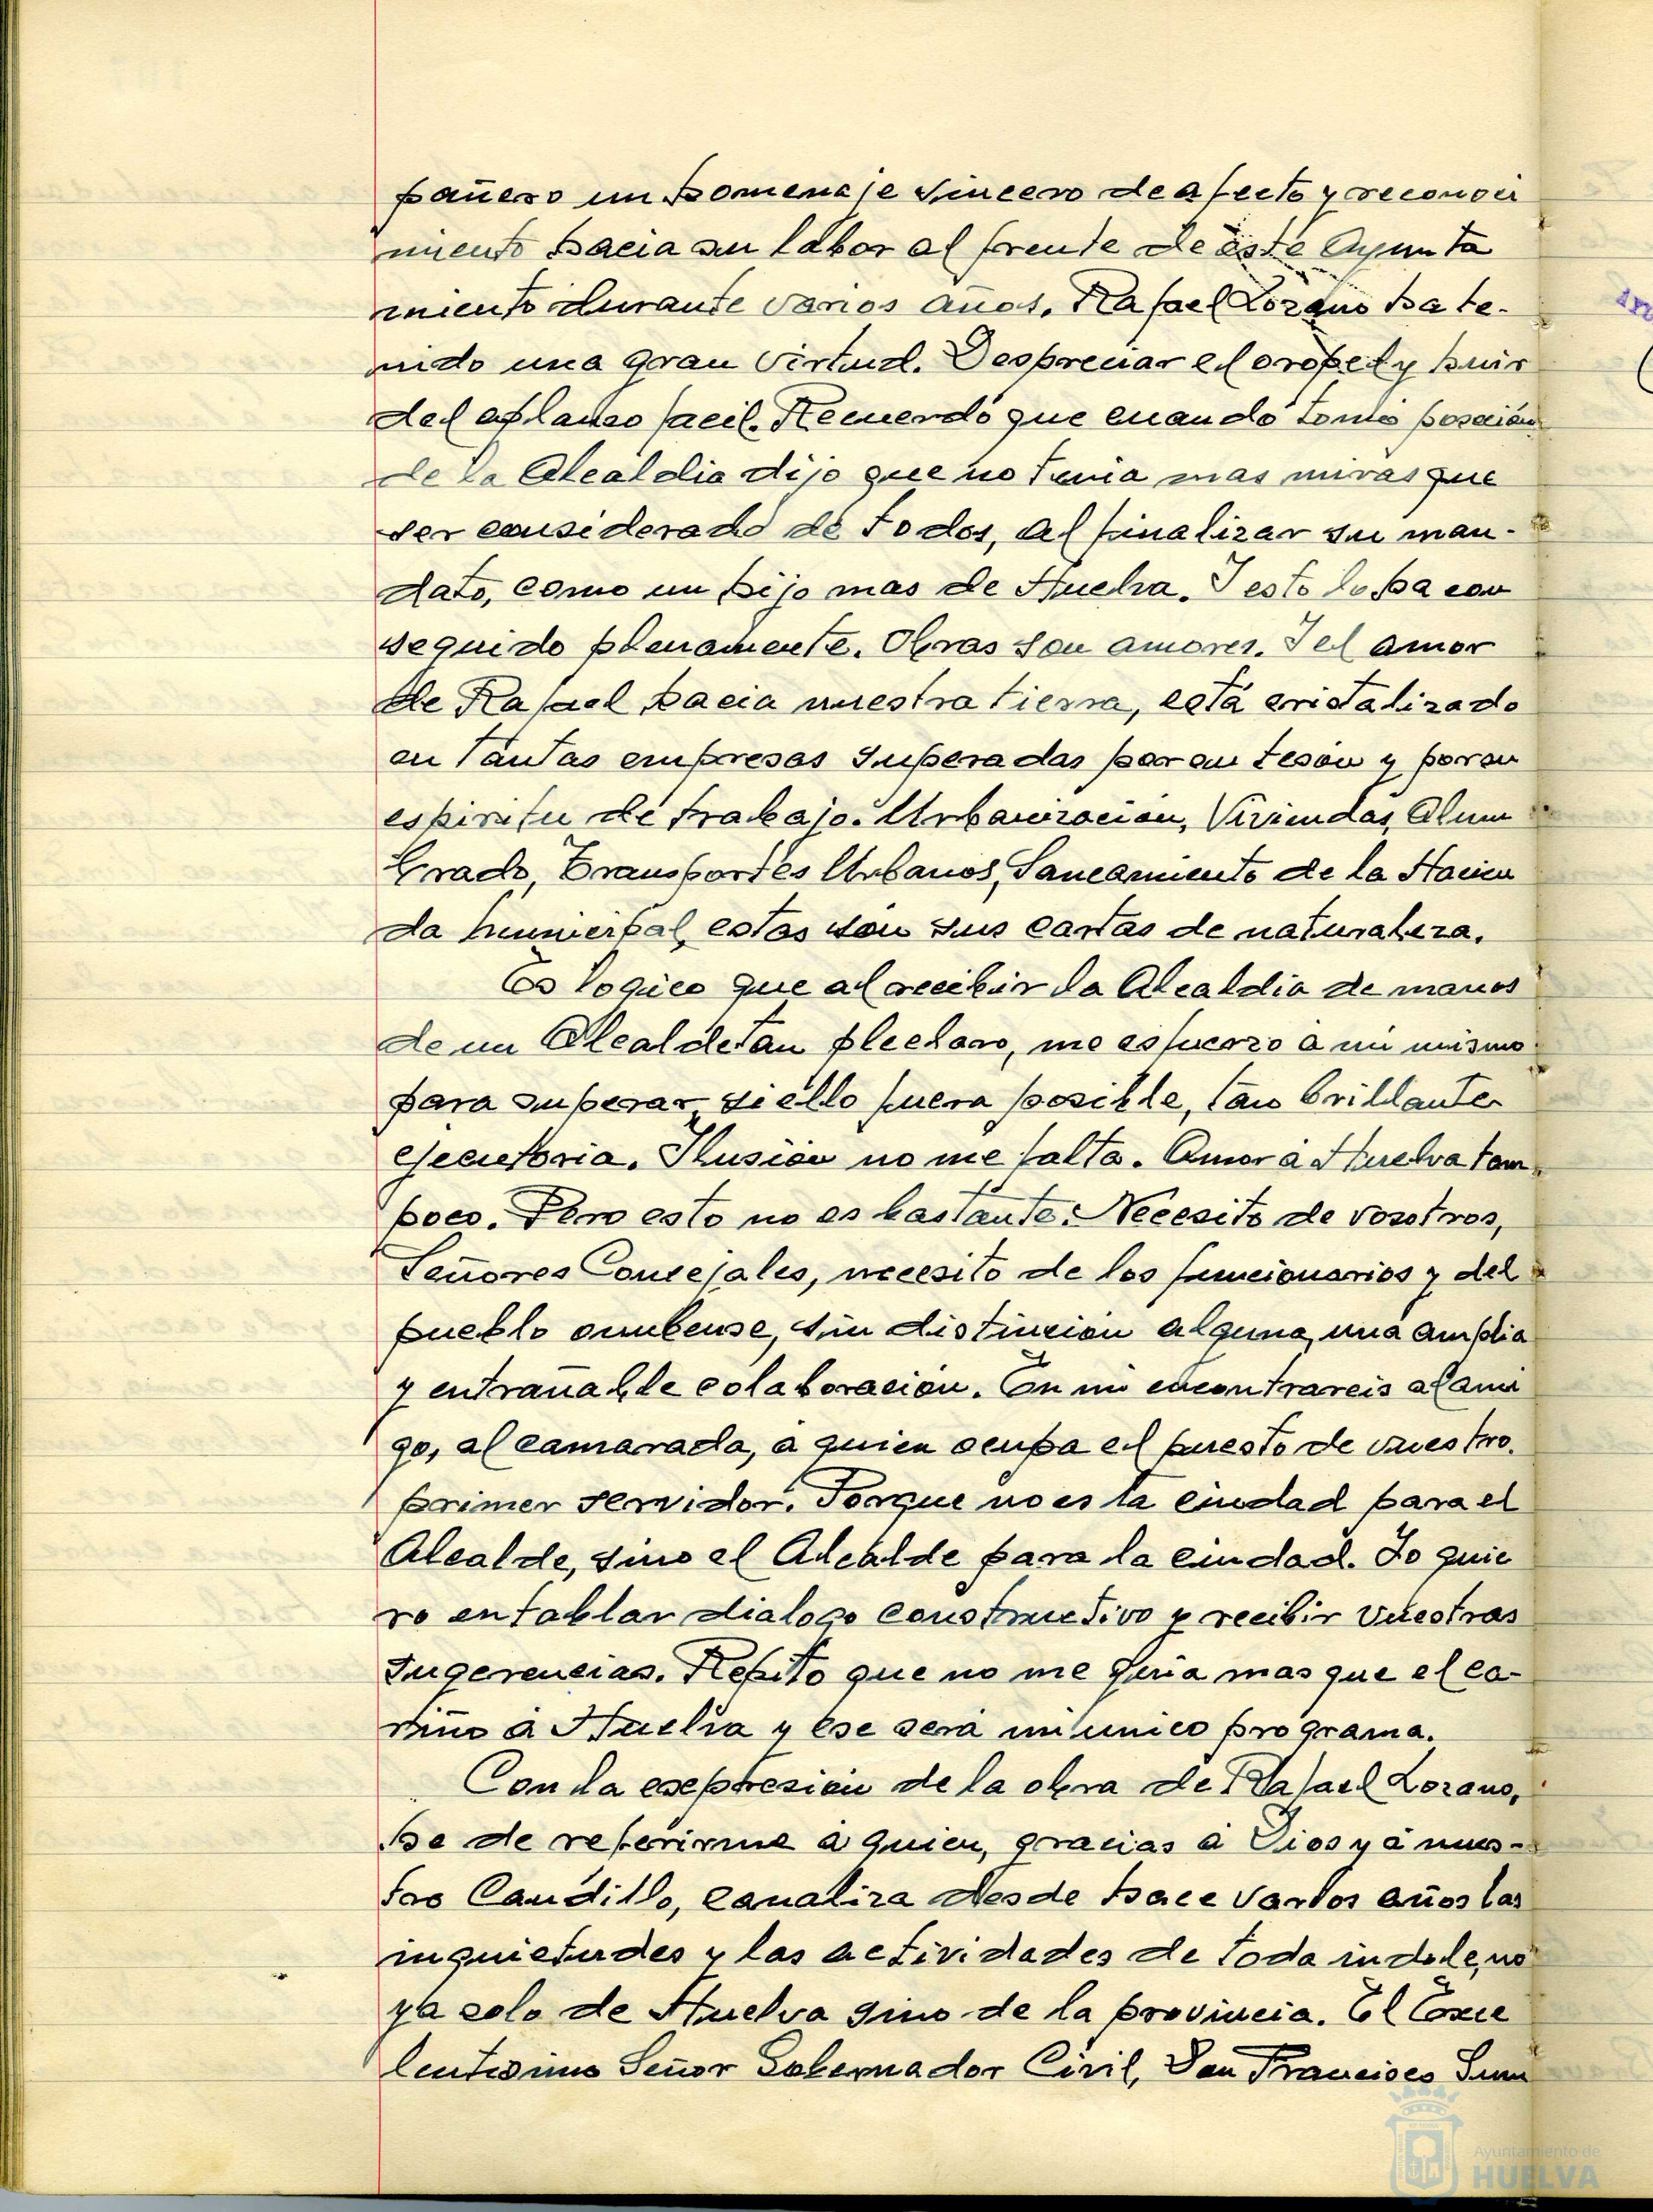 pañero un homenaje sincero de afecto y reconoci
miento hacia su labor al frente de éste Ayunta
miento durante varios años. Rafael Lozano ha te-
nido una gran virtud. Despreciar el oropel y huir
del aplauso facil. Recuerdo que cuando tomó posesión
de la Alcaldia dijo que no tenia mas miras que
ser considerado de todos, al finalizar su man-
dato, como un hijo mas de Huelva. I esto lo ha con
seguido plenamente. Obras son amores. I el amor
de Rafael hacia nuestra tierra, está cristalizado
en tantas empresas superadas por su tesón y por su
espiritu de trabajo. Urbanización, Viviendas, Alum
brado, Transportes Urbanos, Saneamiento de la Hacien
da Municipal, estas son sus cartas de naturaleza.
Es logico que al recibir la Alcaldia de manos
de un Alcalde tan preclaro, me esfuerzo a mi mismo
para superar, si ello fuera posible, tan brillante
ejecutoria. Ilusión no me falta. Amor a Huelva tam
poco. Pero esto no es bastante. Necesito de vosotros,
Señores Concejales, necesito de los funcionarios y del
pueblo onubense, sin distinción alguna, una amplia
y entrañable colaboración. En mi encontrareis al ami
go, al camarada, a quien ocupa el puesto de vuestro
primer servidor. Porque no es la ciudad para el
Alcalde, sino el Alcalde para la ciudad. Yo quie
ro entablar dialogo constructivo y recibir vuestras
sugerencias. Repito que no me guia mas que el ca-
riño a Huelva y ese será mi unico programa.
Con la esepresión de la obra de Rafael Lozano,
he de referirme a quien, gracias a Dios y a nues-
tro Caudillo, canaliza desde hace varios años las
inquietudes y las actividades de toda indole, no
ya solo de Huelva sino de la provincia. El Exce
lentisimo Señor Gobernador Civil, Don Francisco Summ
Ayuntamiento de
HUELVA